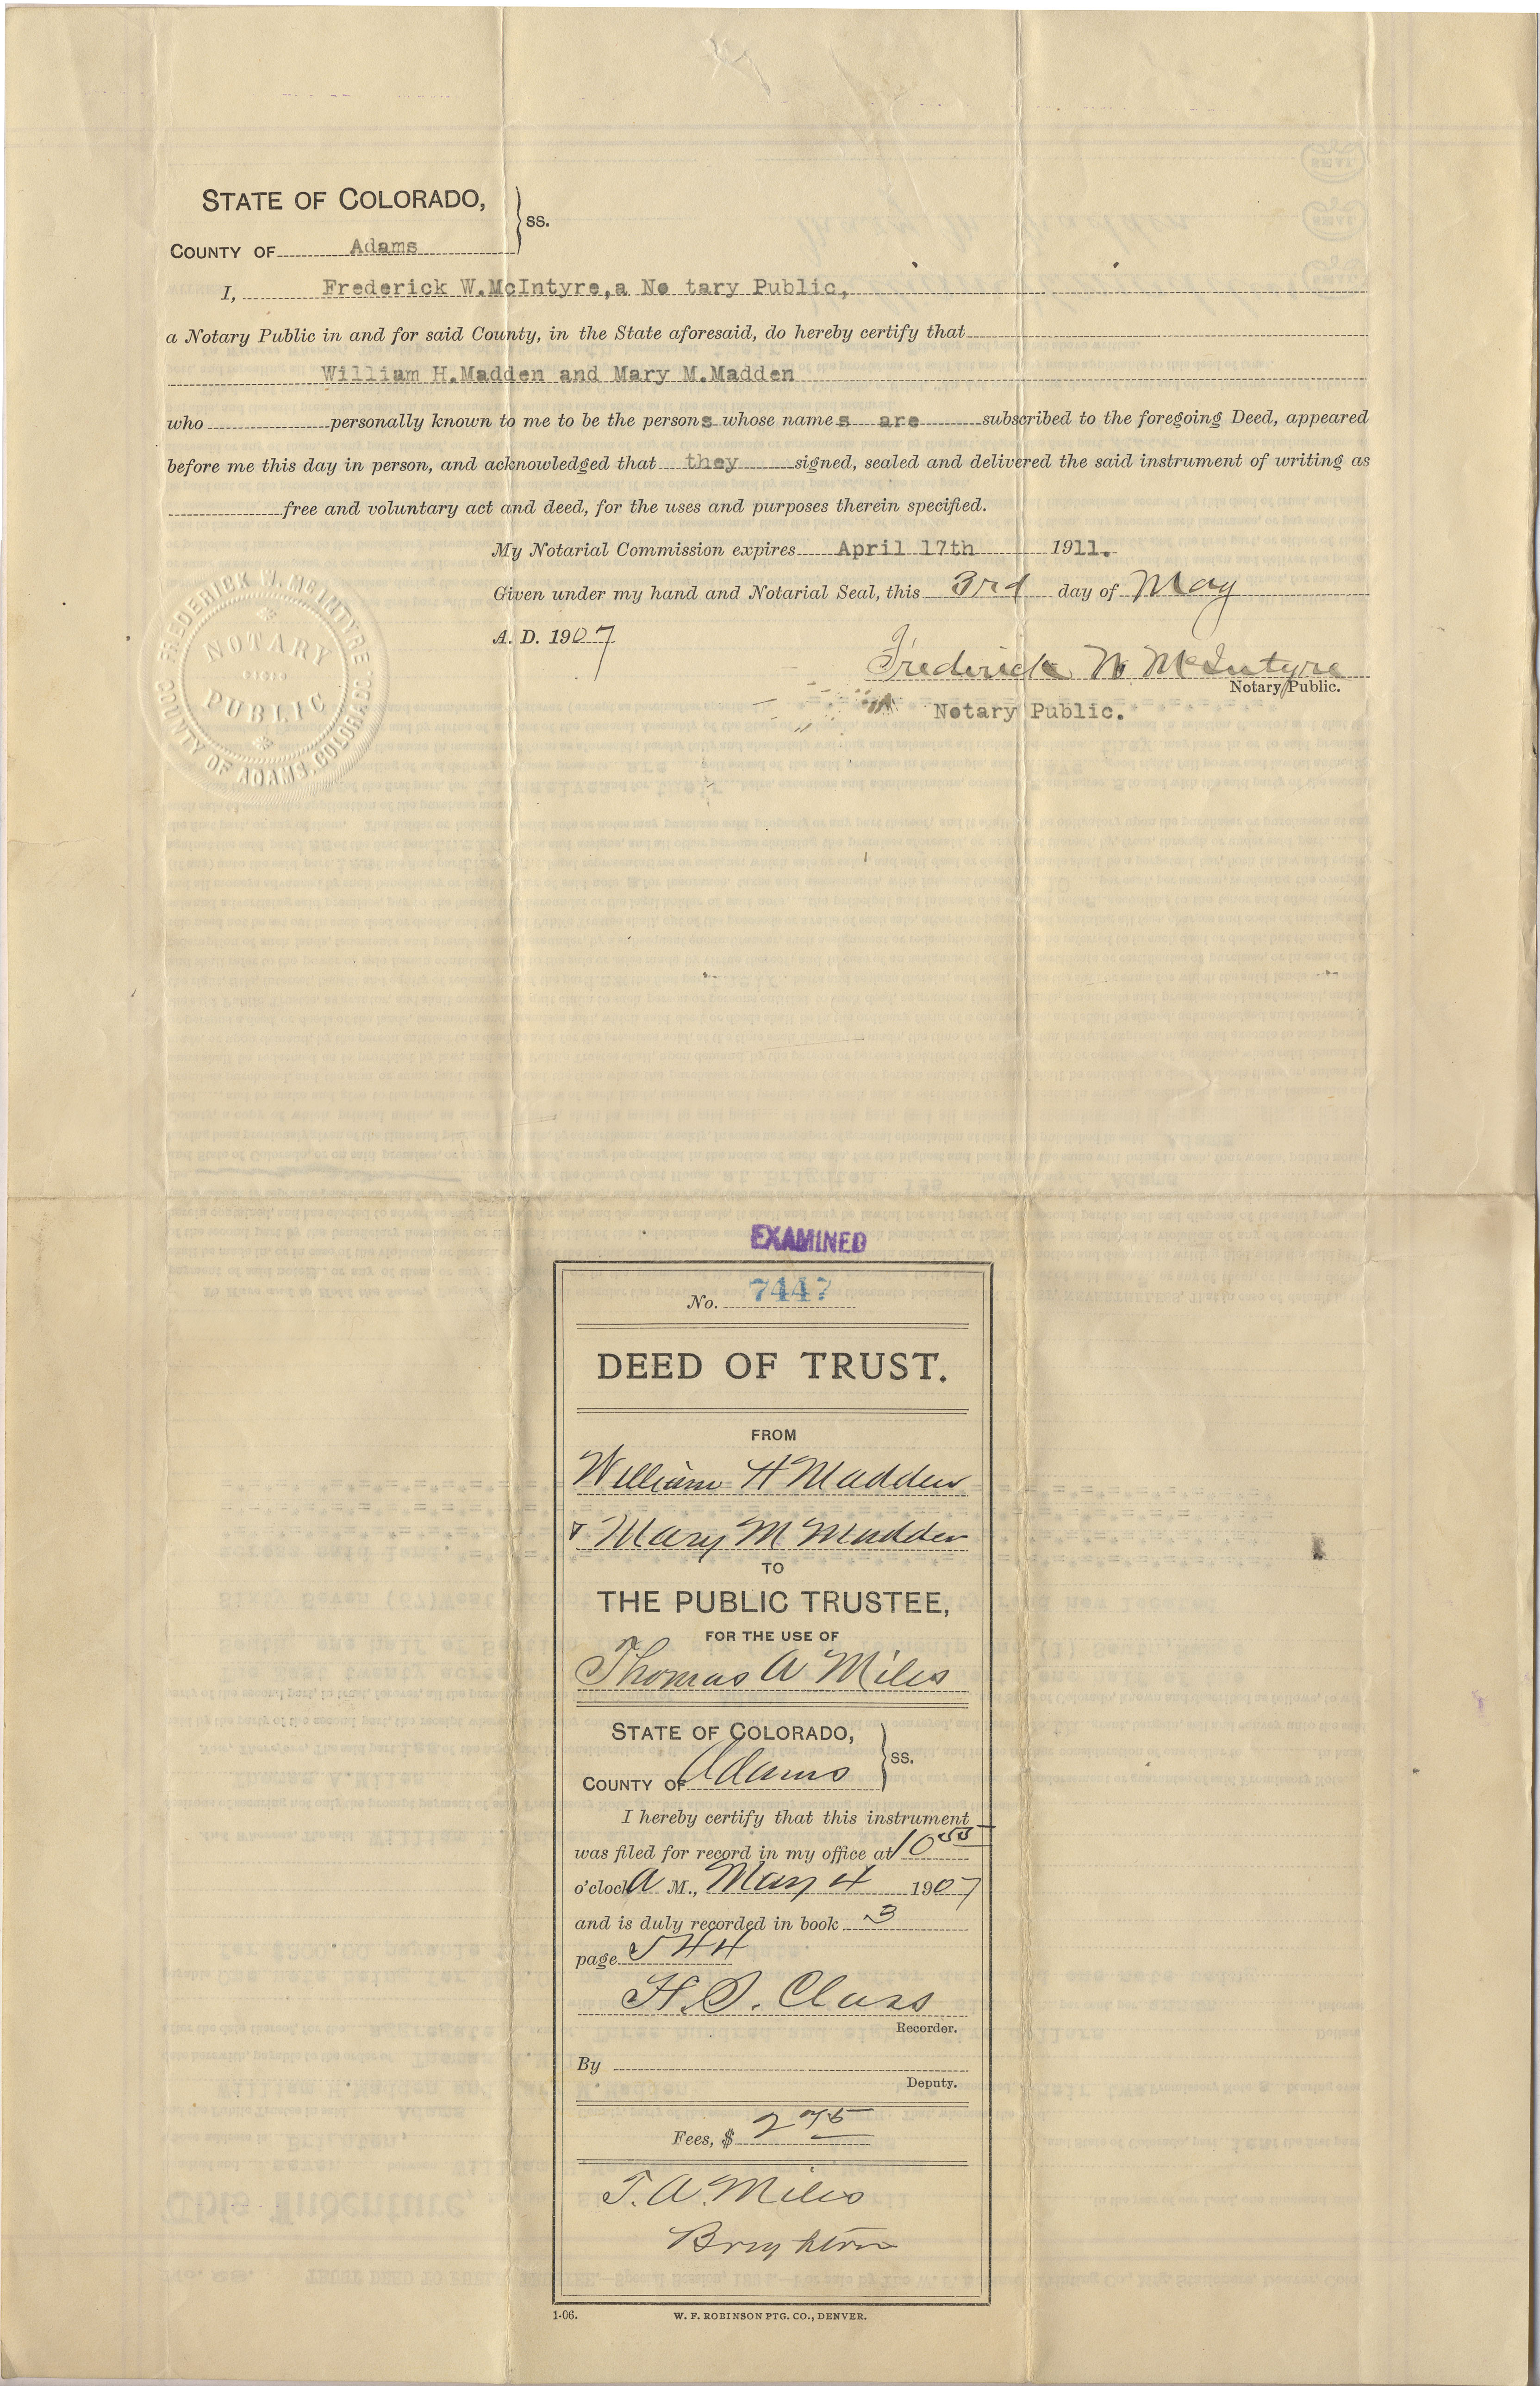 STATE OF COLORADO,
ss.
COUNTY OF Adams
I, Frederick W.McIntyre,a No tary Public,
a Notary Public in and for said County, in the State aforesaid, do hereby certify that
William H.Madden and Mary M.Madden
who personally known to me to be the persons whose names are subscribed to the foregoing Deed, appeared
before me this day in person, and acknowledged that they signed, sealed and delivered the said instrument of writing as
free and voluntary act and deed, for the uses and purposes therein specified.
My Notarial Commission expires April 17th 1911.
Given under my hand and Notarial Seal, this 3rd day of May
A. D. 1907
Frederick W McIntyre
Notary Public.
Notary Public.
FREDERICK W. McINTYRE
NOTARY
PUBLIC
COUNTY OF ADAMS, COLORADO.
EXAMINED
No. 7447
DEED OF TRUST.
FROM
William H Madden
& Mary M Madden
TO
THE PUBLIC TRUSTEE,
FOR THE USE OF
Thomas A Miles
STATE OF COLORADO,
ss.
COUNTY OF Adams
I hereby certify that this instrument
was filed for record in my office at 10 55
o'clock A M., May 4 1907
and is duly recorded in book 3
page 544
H. S. Class
Recorder.
By
Deputy.
Fees, $ 2 75
T. A. Miles
Brighton
1-06.
W. F. ROBINSON PTG. CO., DENVER.